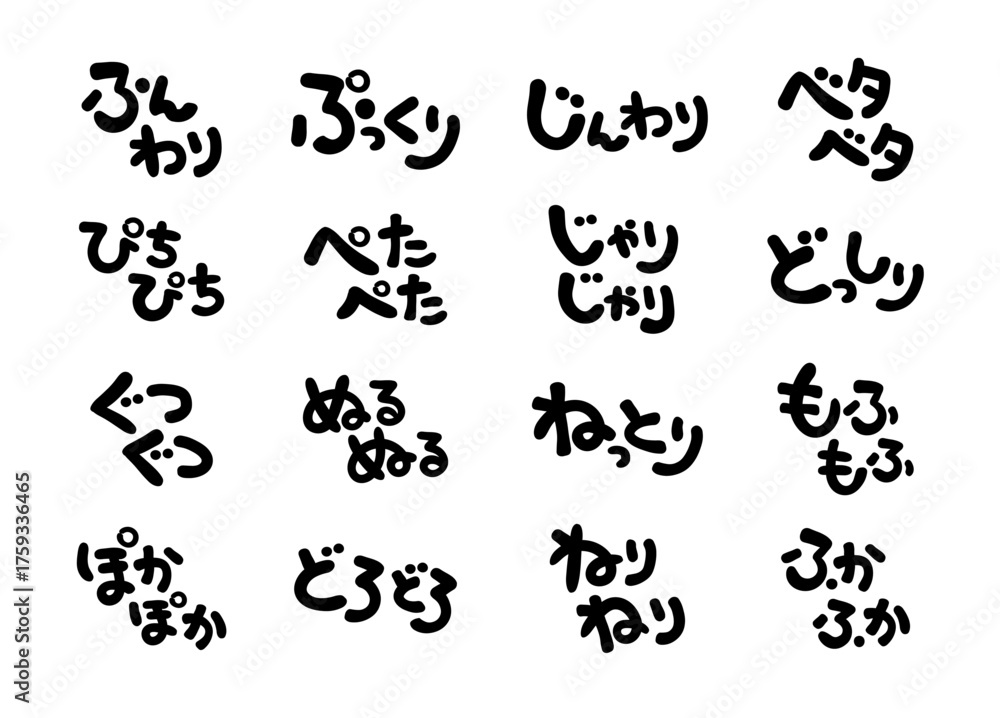 ふん
わり
ぷっくり
じんわり
ベタ
ベタ
ぴち
ぴち
ぺた
ぺた
じゃり
じゃり
どっしり
ぐつ
ぐつ
ぬる
ぬる
ねっとり
もふ
もふ
ぽか
ぽか
どろどろ
ねり
ねり
ふか
ふか
Adobe Stock | #1759336465